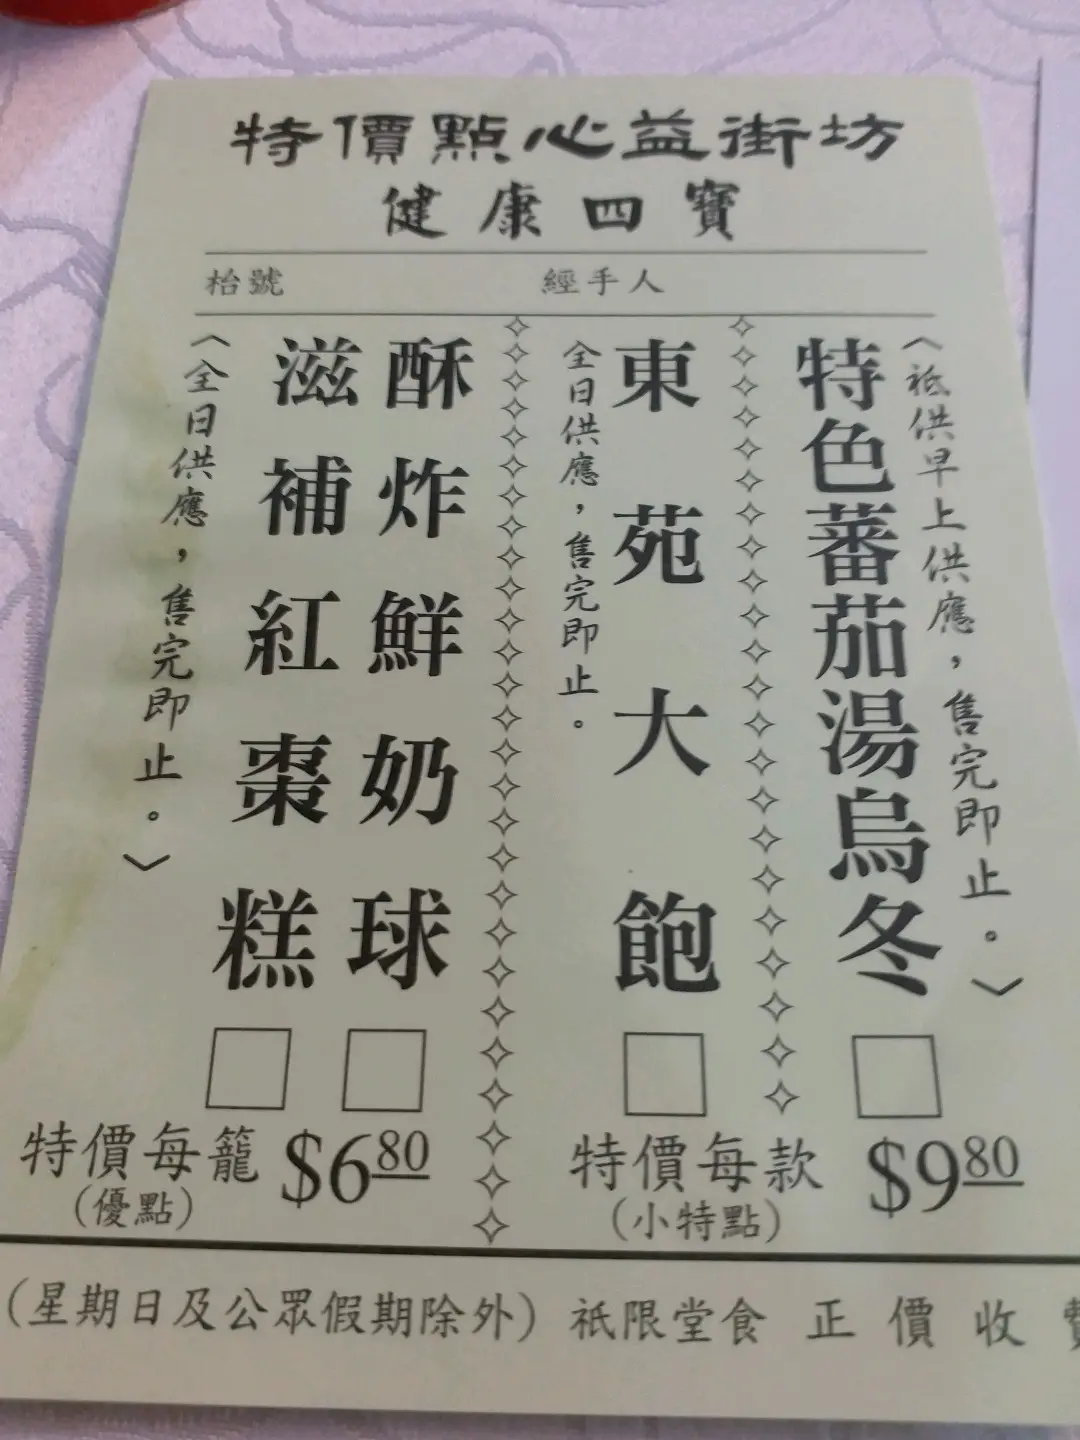 特價點心益街坊
健康四寶
枱號 經手人
〈祗供早上供應，售完即止。〉
特色蕃茄湯烏冬
東苑大飽
全日供應，售完即止。
酥炸鮮奶球
滋補紅棗糕
〈全日供應，售完即止。〉
特價每籠 $6.80
(優點)
特價每款 $9.80
(小特點)
(星期日及公眾假期除外) 祗限堂食 正價收費